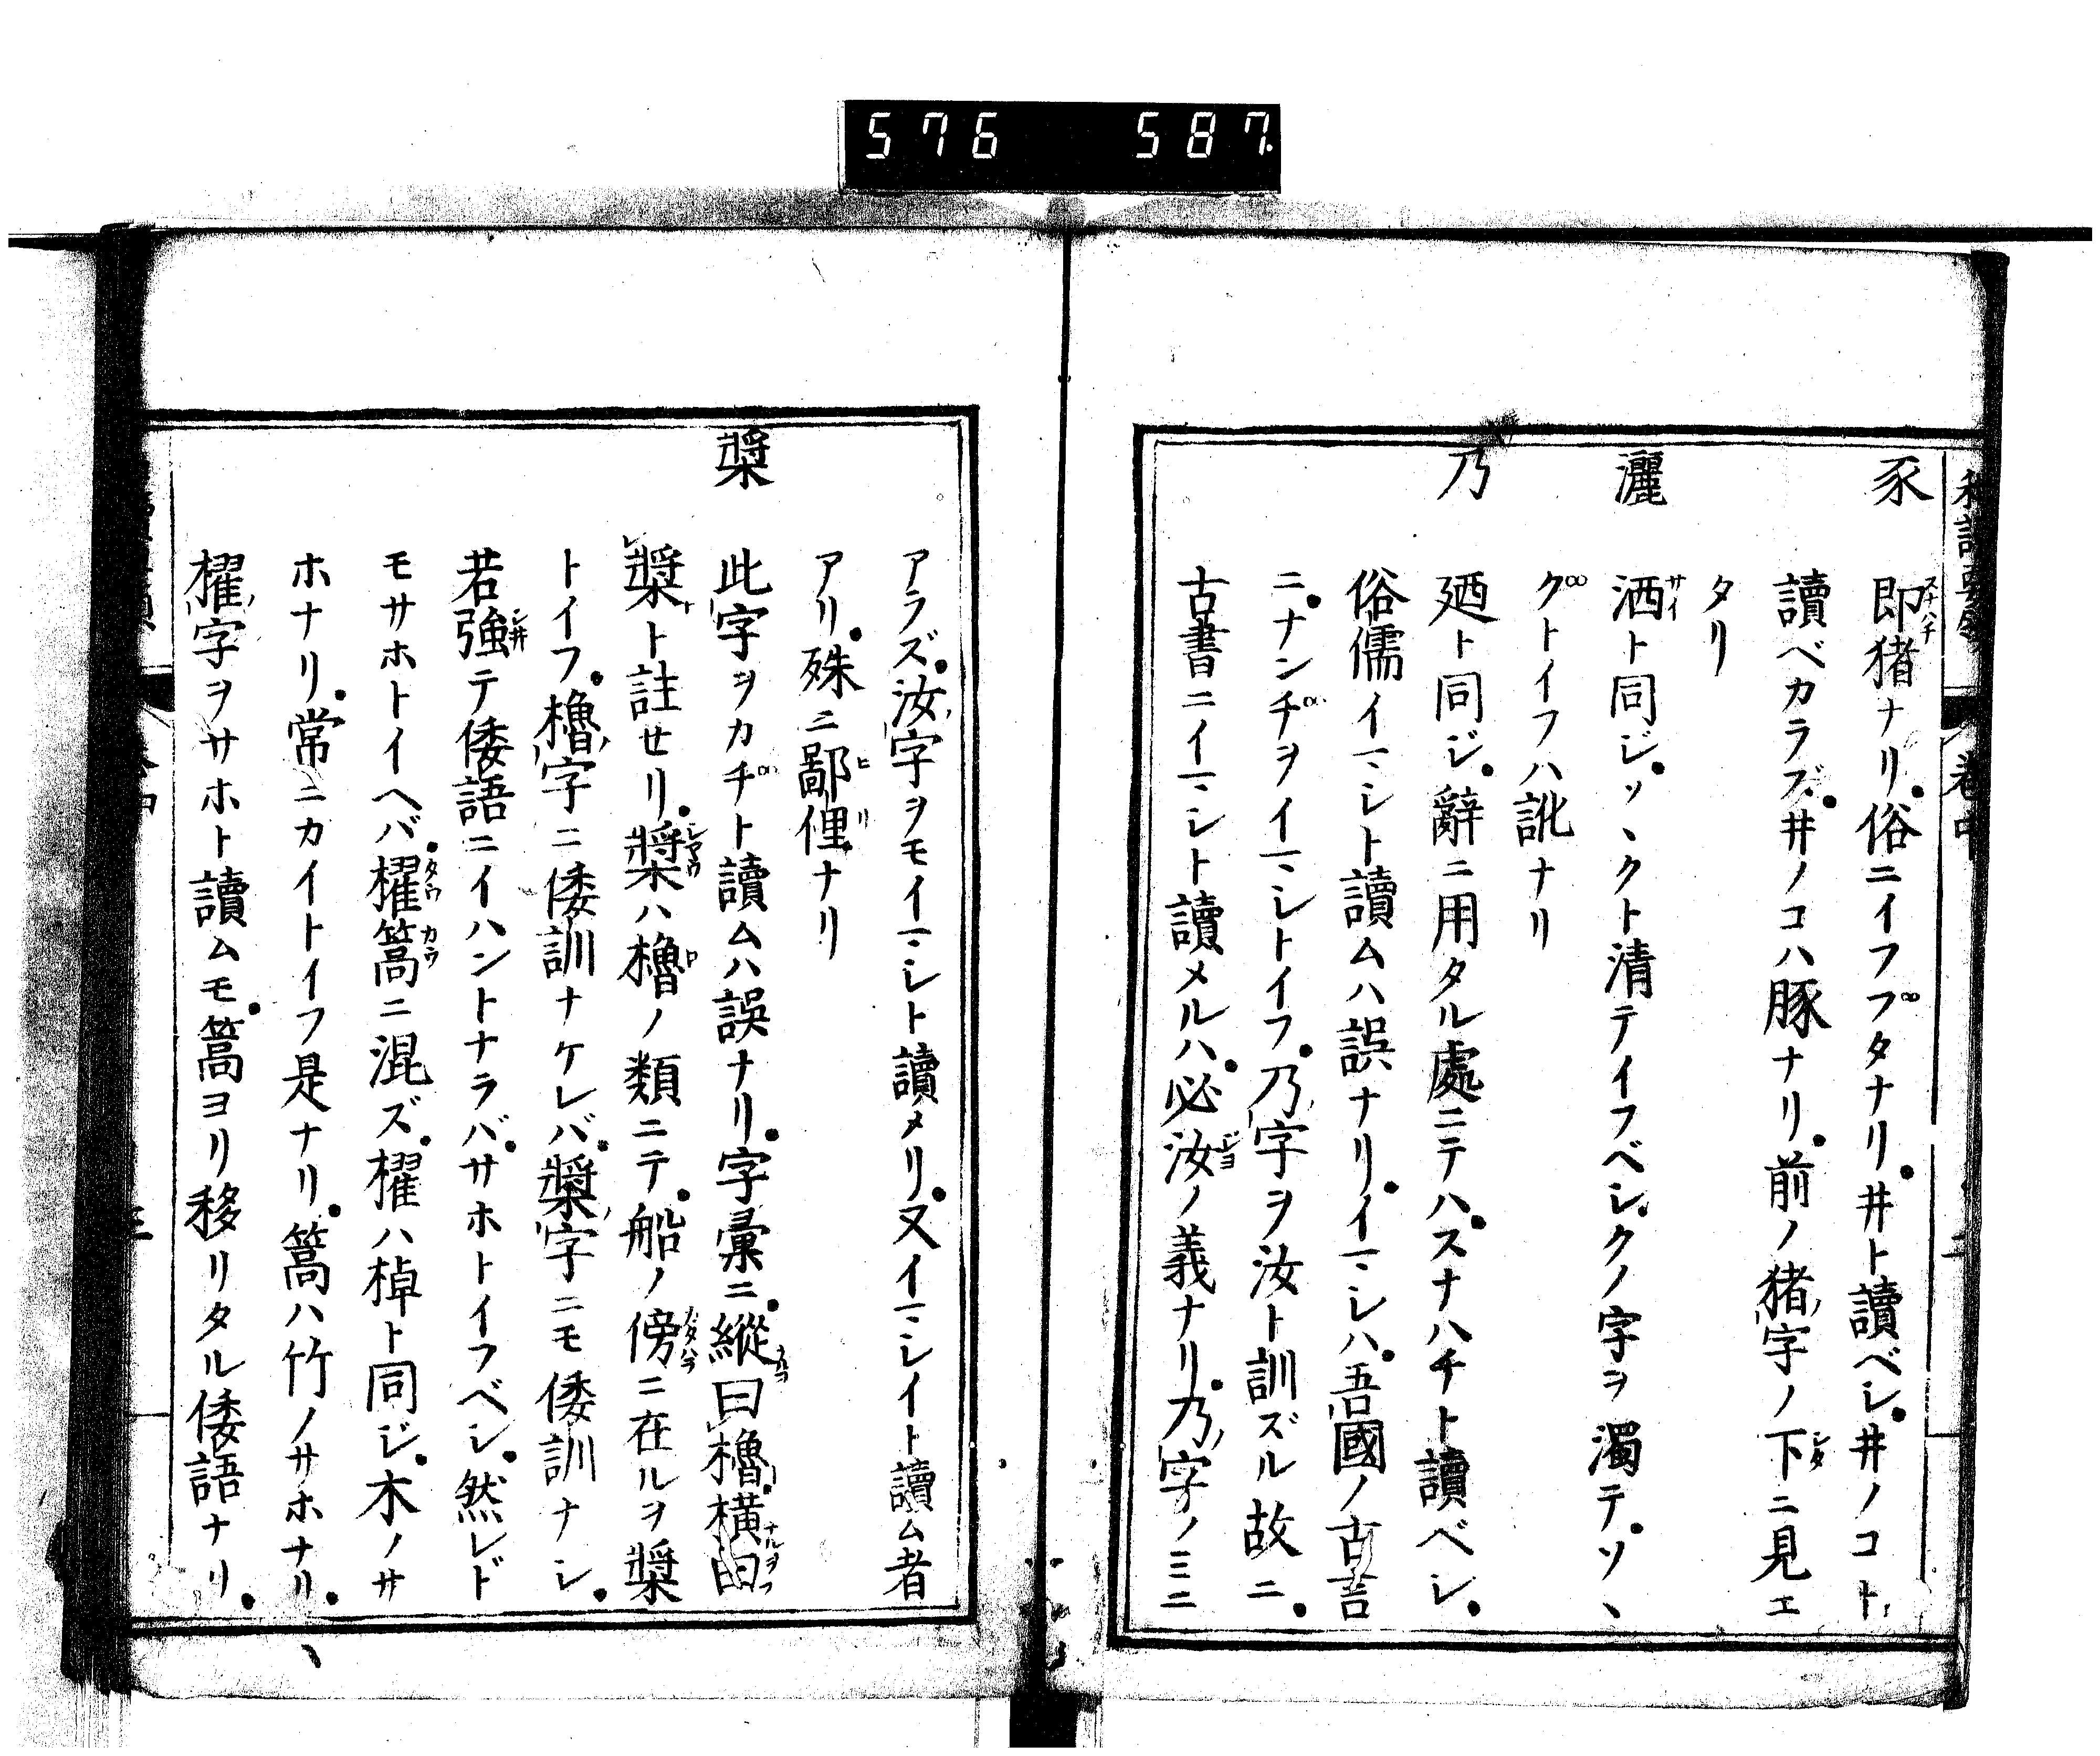 576 587
豕 即猪ナリ。俗ニイフブタナリ。井ト讀ベシ。井ノコト
讀ベカラズ。井ノコハ豚ナリ。前ノ猪字ノ下ニ見エ
タリ
灑 洒ト同ジ。ソヽクト清テイフベシ。クノ字ヲ濁テ。ソヽ
グトイフハ訛ナリ
乃 廼ト同ジ。辭ニ用タル處ニテハ。スナハチト讀ベシ。
俗儒イマシト讀ムハ誤ナリ。イマシハ。吾國ノ古言
ニ。ナンヂヲイマシトイフ。乃字ヲ汝ト訓ズル故ニ。
古書ニイマシト讀メルハ。必汝ノ義ナリ。乃字ノミニ
アラズ。汝字ヲモイマシト讀メリ。又イマシイト讀ム者
アリ。殊ニ鄙俚ナリ
槳 此字ヲカヂト讀ムハ誤ナリ。字彙ニ。縱曰櫓。橫曰
槳ト註セリ。槳ハ櫓ノ類ニテ。船ノ傍ニ在ルヲ槳
トイフ。櫓字ニ倭訓ナケレバ。槳字ニモ倭訓ナシ。
若強テ倭語ニイハントナラバ。サホトイフベシ。然レド
モサホトイヘバ。櫂篙ニ混ズ。櫂ハ棹ト同ジ。木ノサ
ホナリ。常ニカイトイフ是ナリ。篙ハ竹ノサホナリ。
櫂字ヲサホト讀ムモ。篙ヨリ移リタル倭語ナリ。